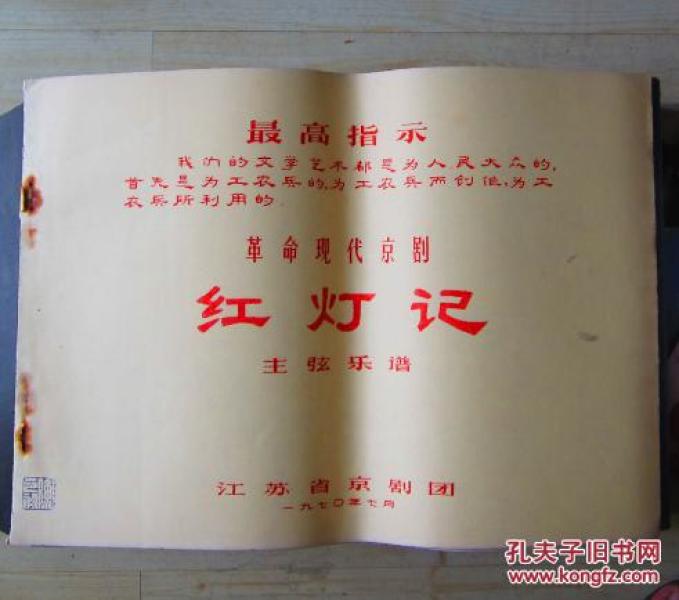 最高指示
我们的文学艺术都是为人民大众的,
首先是为工农兵的,为工农兵而创作,为工
农兵所利用的.
革命现代京剧
红灯记
主弦乐谱
江苏省京剧团
一九七〇年七月
孔夫子旧书网
www.kongfz.com